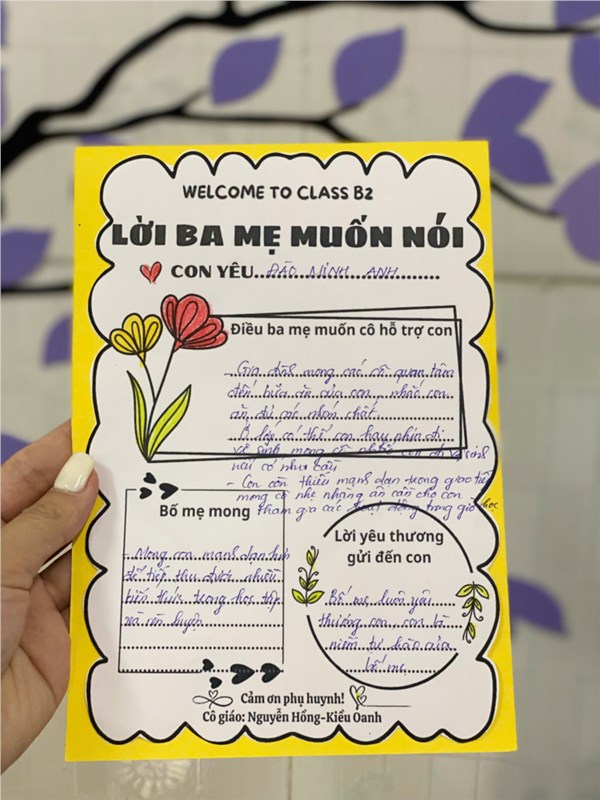 WELCOME TO CLASS B2
LỜI BA MẸ MUỐN NÓI
CON YÊU....ĐÀO MINH ANH..........
Điều ba mẹ muốn cô hỗ trợ con
- Gia đình mong các cô quan tâm
đến bữa ăn của con, nhắc con
ăn đủ các nhóm chất.
- Ở lớp có thể con hay phía đi
vệ sinh mong cô nhắc con đi vệ sinh
nếu có như cầu
- Con còn thiếu mạnh dạn trong giao tiếp
mong cô nhẹ nhàng ân cần cho con
tham gia các hoạt động trong giờ học
Bố mẹ mong
- Mong con mạnh dạn hơn
để tiếp thu được nhiều
kiến thức trong học tập
và rèn luyện
Lời yêu thương
gửi đến con
Bố mẹ luôn yêu
thương con con là
niềm tự hào của
bố mẹ
Cảm ơn phụ huynh!
Cô giáo: Nguyễn Hồng-Kiều Oanh